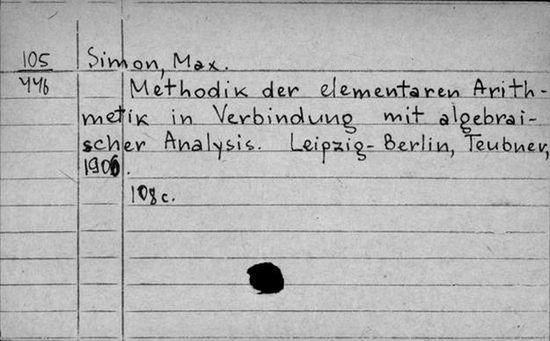 105 Simon, Max.
446 Methodik der elementaren Arith-
metik in Verbindung mit algebrai-
scher Analysis. Leipzig-Berlin, Teubner,
1906.
108 c.